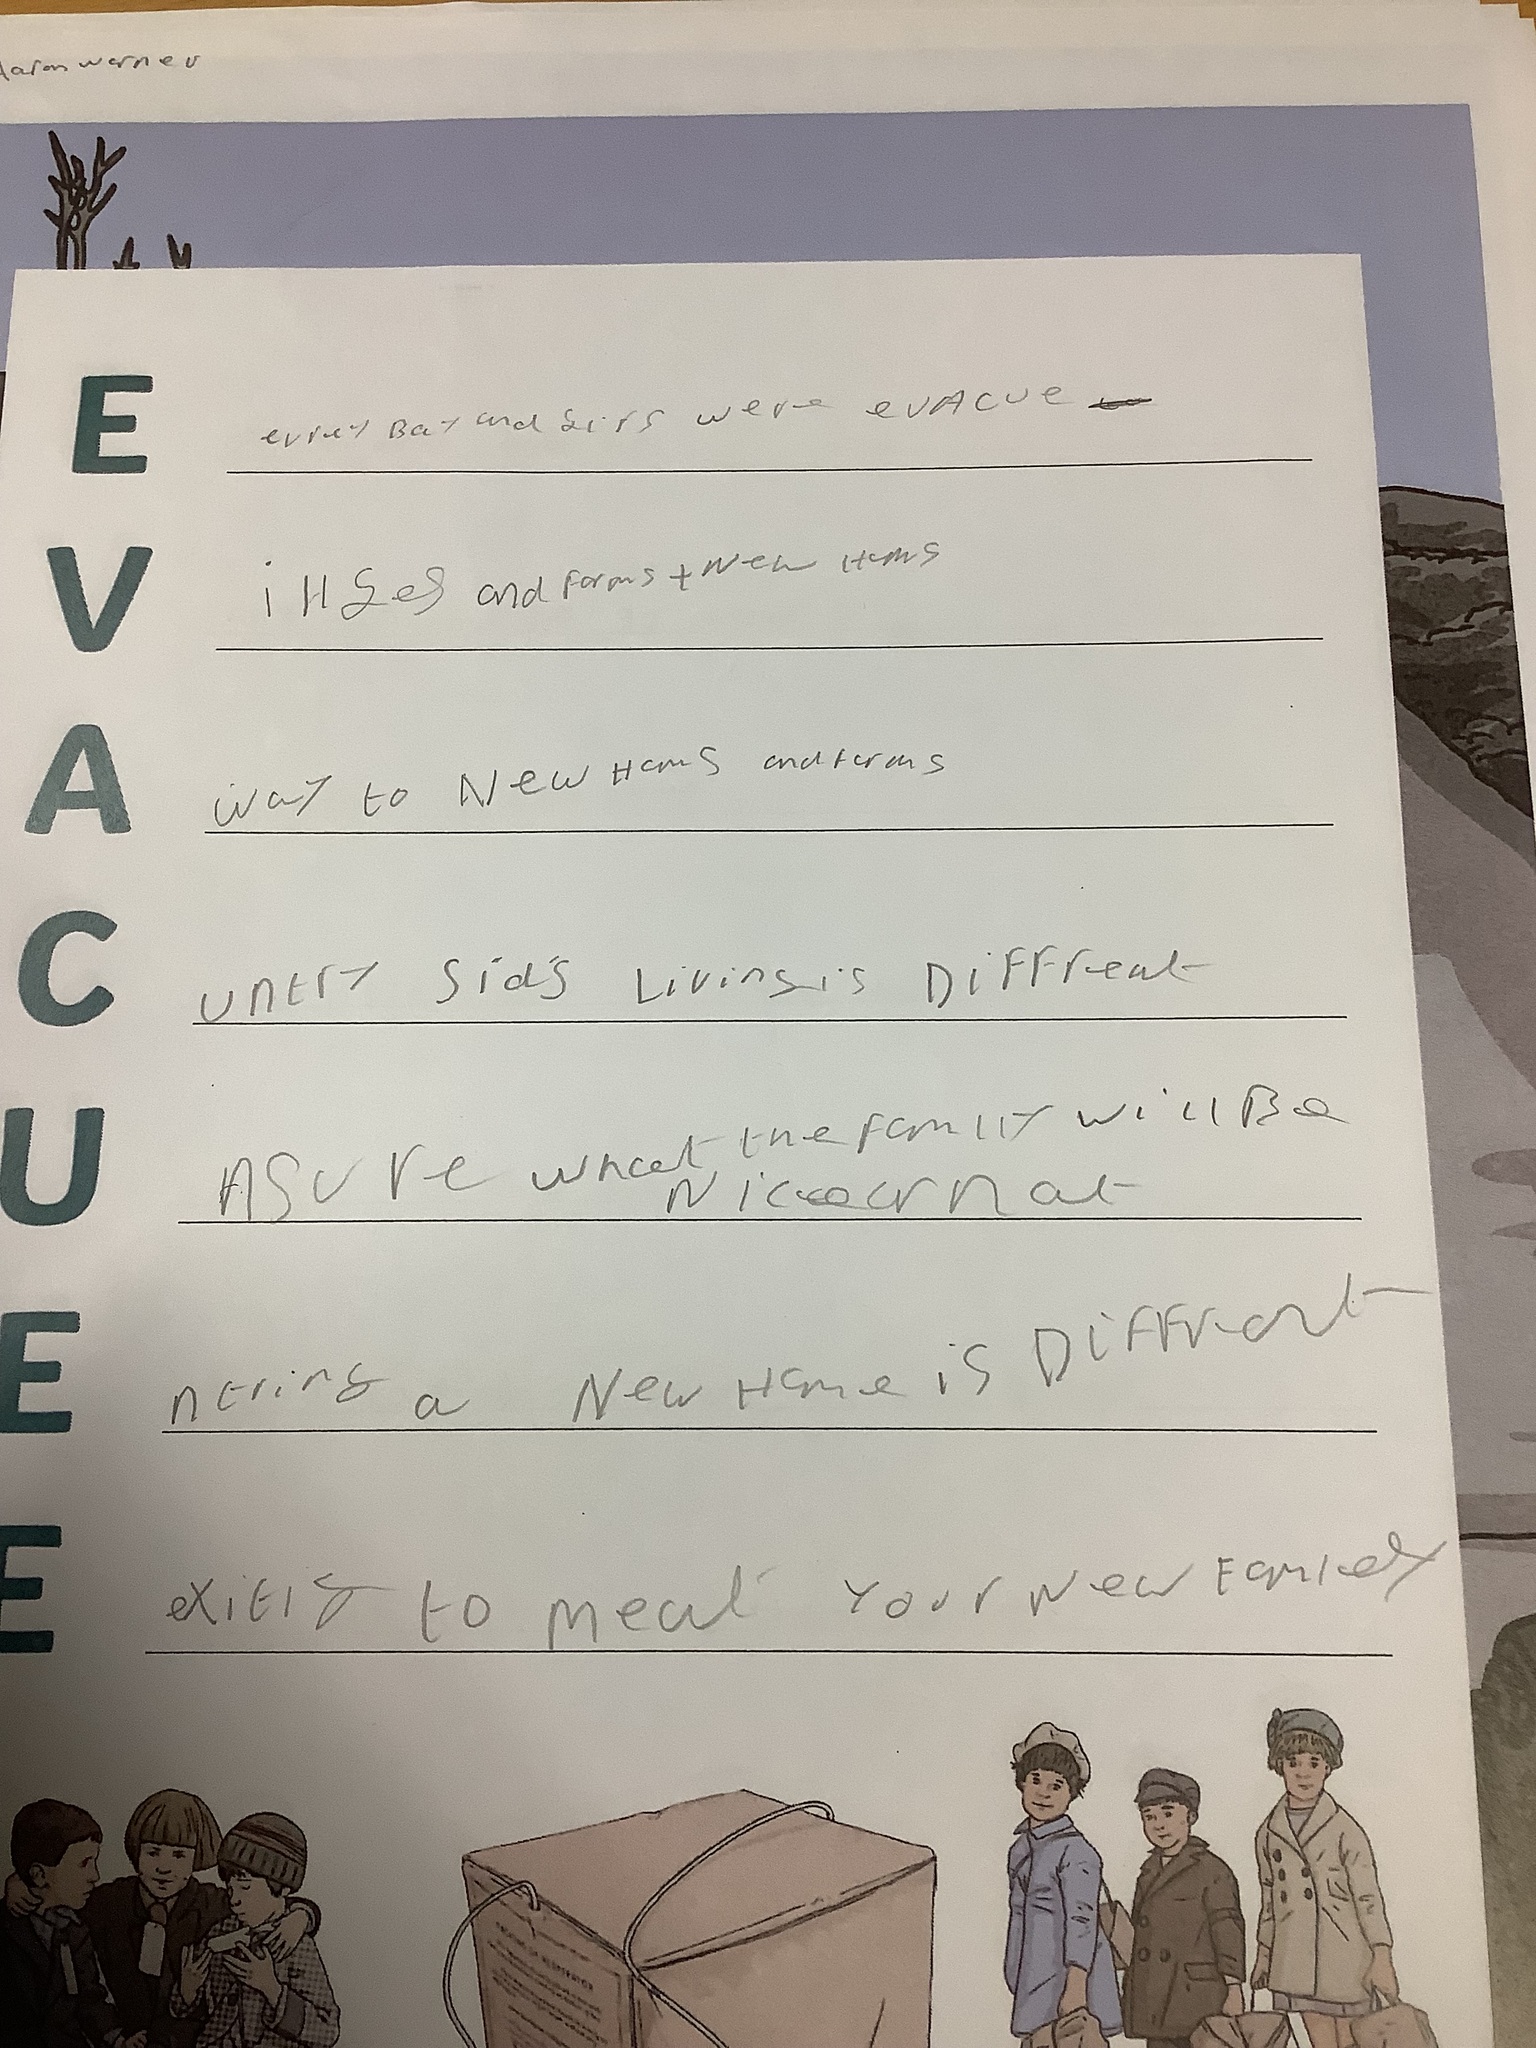 Aaron werner
E everey Boy and Girls were evAcue
V iHGes and farms + New Homs
A way to New Homs and farms
C untry Sids Living is DiffFreat
U ASure wheat the family will Be
Nice or nat
E ntring a New Home is DiFFreant
E exitig to meat Your New Familey